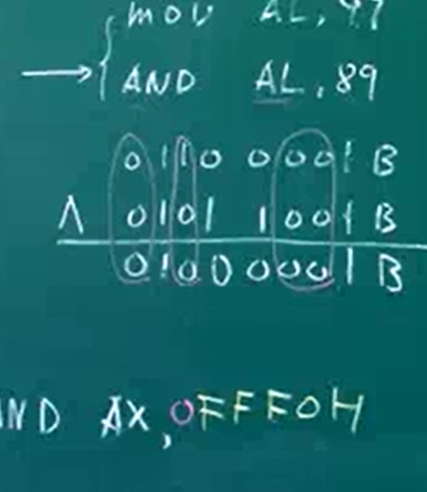 mov AL, 97
→ AND AL, 89
0110 0001 B
∧ 0101 1001 B
0100 0001 B
AND AX, 0FFF0H